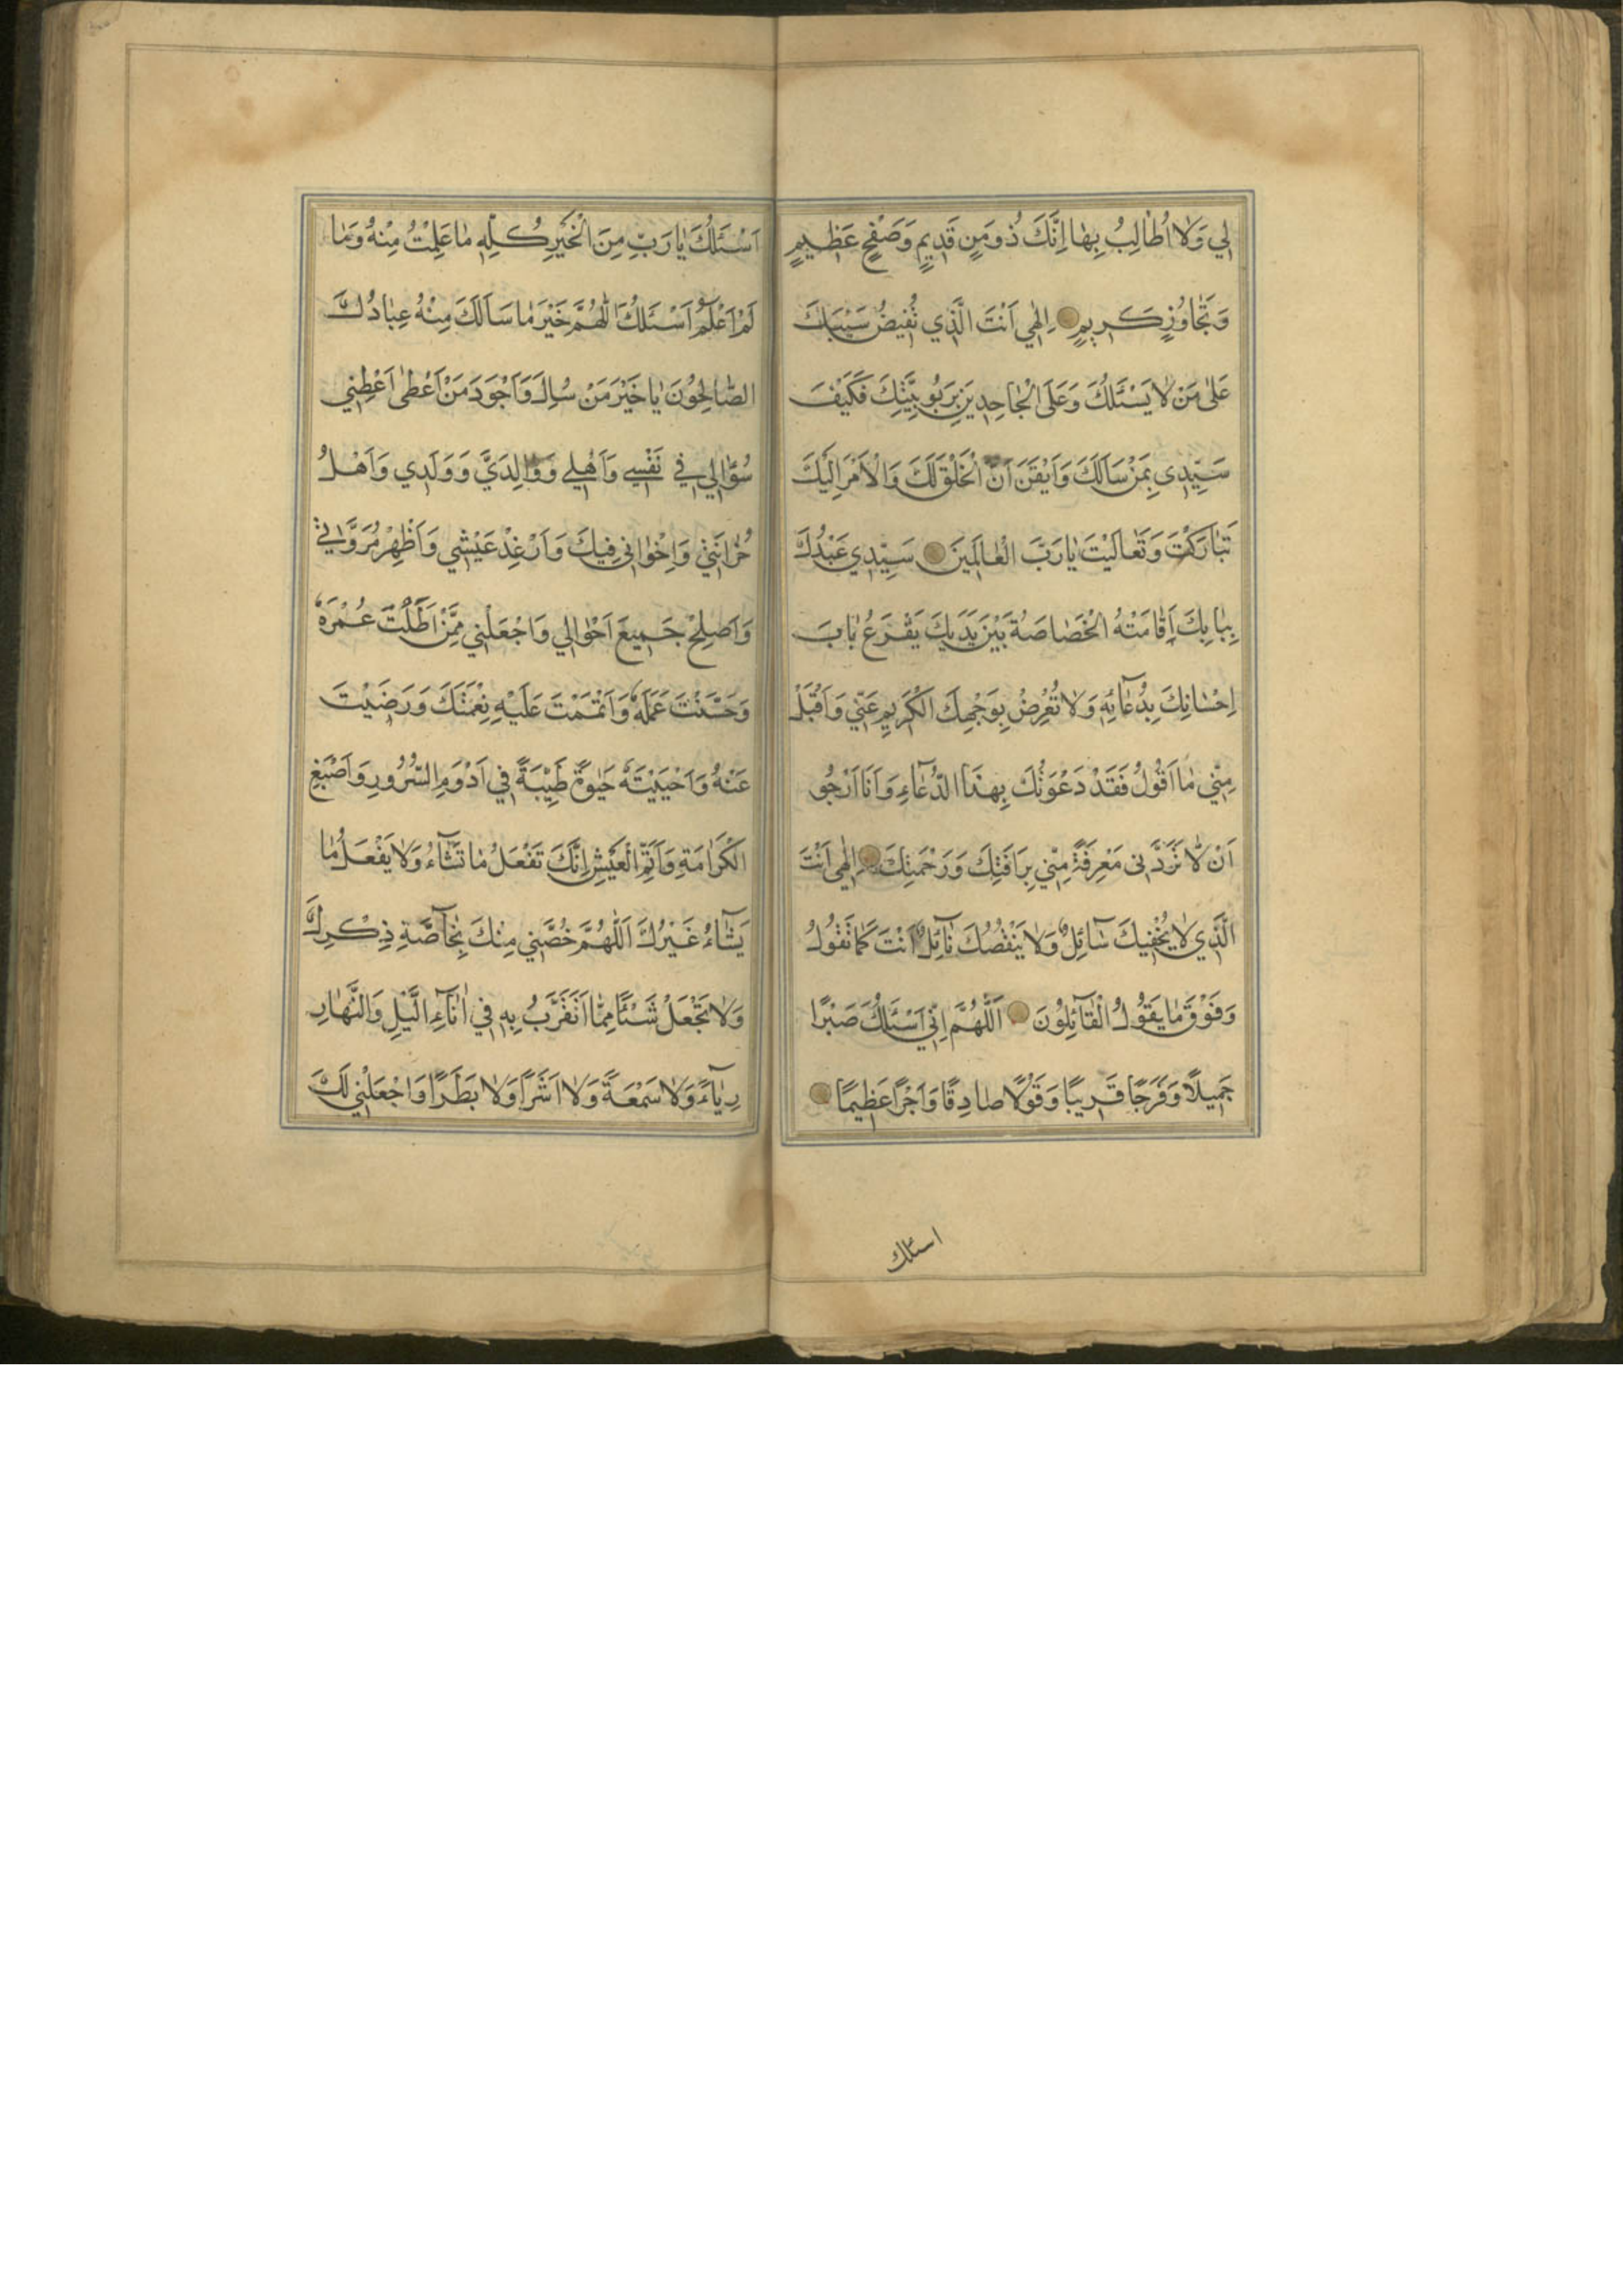 لِي وَلَا اُطَالِبُ بِهَا اِنَّكَ ذُو مَنٍ قَدِيمٍ وَصَفْحٍ عَظِيمٍ
وَتَجَاوُزٍ كَرِيمٍ اِلٰهِي اَنْتَ الَّذِي تُفِيضُ سَيْبَكَ
عَلٰى مَنْ لَا يَسْئَلُكَ وَعَلَى الْجَاحِدِينَ بِرَبُوبِيَّتِكَ فَكَيْفَ
سَيِّدِي بِمَنْ سَاَلَكَ وَاَيْقَنَ اَنَّ الْخَلْقَ لَكَ وَالْاَمْرَ اِلَيْكَ
تَبَارَكْتَ وَتَعَالَيْتَ يَا رَبَّ الْعَالَمِينَ سَيِّدِي عَبْدُكَ
بِبَابِكَ اَقَامَتْهُ الْخَصَاصَةُ بَيْنَ يَدَيْكَ يَقْرَعُ بَابَ
اِحْسَانِكَ بِدُعَآئِهِ وَلَا تُعْرِضْ بِوَجْهِكَ الْكَرِيمِ عَنِّي وَاَقْبَلْ
مِنِّي مَا اَقُولُ فَقَدْ دَعَوْتُكَ بِهٰذَا الدُّعَآءِ وَاَنَا اَرْجُو
اَنْ لَا تَرُدَّنِي مَعْرِفَةً مِنِّي بِرَاْفَتِكَ وَرَحْمَتِكَ اِلٰهِي اَنْتَ
الَّذِي لَا يُحْفِيكَ سَآئِلٌ وَلَا يَنْقُصُكَ نَآئِلٌ اَنْتَ كَمَا تَقُولُ
وَفَوْقَ مَا يَقُولُ الْقَآئِلُونَ اَللّٰهُمَّ اِنِّي اَسْئَلُكَ صَبْرًا
جَمِيلًا وَفَرَجًا قَرِيبًا وَقَوْلًا صَادِقًا وَاَجْرًا عَظِيمًا
اسئلك
اَسْئَلُكَ يَا رَبِّ مِنَ الْخَيْرِ كُلِّهِ مَا عَلِمْتُ مِنْهُ وَمَا
لَمْ اَعْلَمْ اَسْئَلُكَ اللّٰهُمَّ خَيْرَ مَا سَاَلَكَ مِنْهُ عِبَادُكَ
الصَّالِحُونَ يَا خَيْرَ مَنْ سُئِلَ وَاَجْوَدَ مَنْ اَعْطٰى اَعْطِنِي
سُؤْلِي فِي نَفْسِي وَاَهْلِي وَوَالِدَيَّ وَوَلَدِي وَاَهْلِ
حُزَانَتِي وَاِخْوَانِي فِيكَ وَاَرْغِدْ عَيْشِي وَاَظْهِرْ مُرُوَّتِي
وَاَصْلِحْ جَمِيعَ اَحْوَالِي وَاجْعَلْنِي مِمَّنْ اَطَلْتَ عُمْرَهُ
وَحَسَّنْتَ عَمَلَهُ وَاَتْمَمْتَ عَلَيْهِ نِعْمَتَكَ وَرَضِيتَ
عَنْهُ وَاَحْيَيْتَهُ حَيٰوةً طَيِّبَةً فِي اَدْوَمِ السُّرُورِ وَاَصْبَغِ
الْكَرَامَةِ وَاَتَمِّ الْعَيْشِ اِنَّكَ تَفْعَلُ مَا تَشَآءُ وَلَا يَفْعَلُ مَا
يَشَآءُ غَيْرُكَ اَللّٰهُمَّ خُصَّنِي مِنْكَ بِخَآصَّةِ ذِكْرِكَ
وَلَا تَجْعَلْ شَيْئًا مِمَّا اَتَقَرَّبُ بِهِ فِي اٰنَآءِ الَّيْلِ وَالنَّهَارِ
رِيَآءً وَلَا سَمْعَةً وَلَا اَشَرًا وَلَا بَطَرًا وَاجْعَلْنِي لَكَ